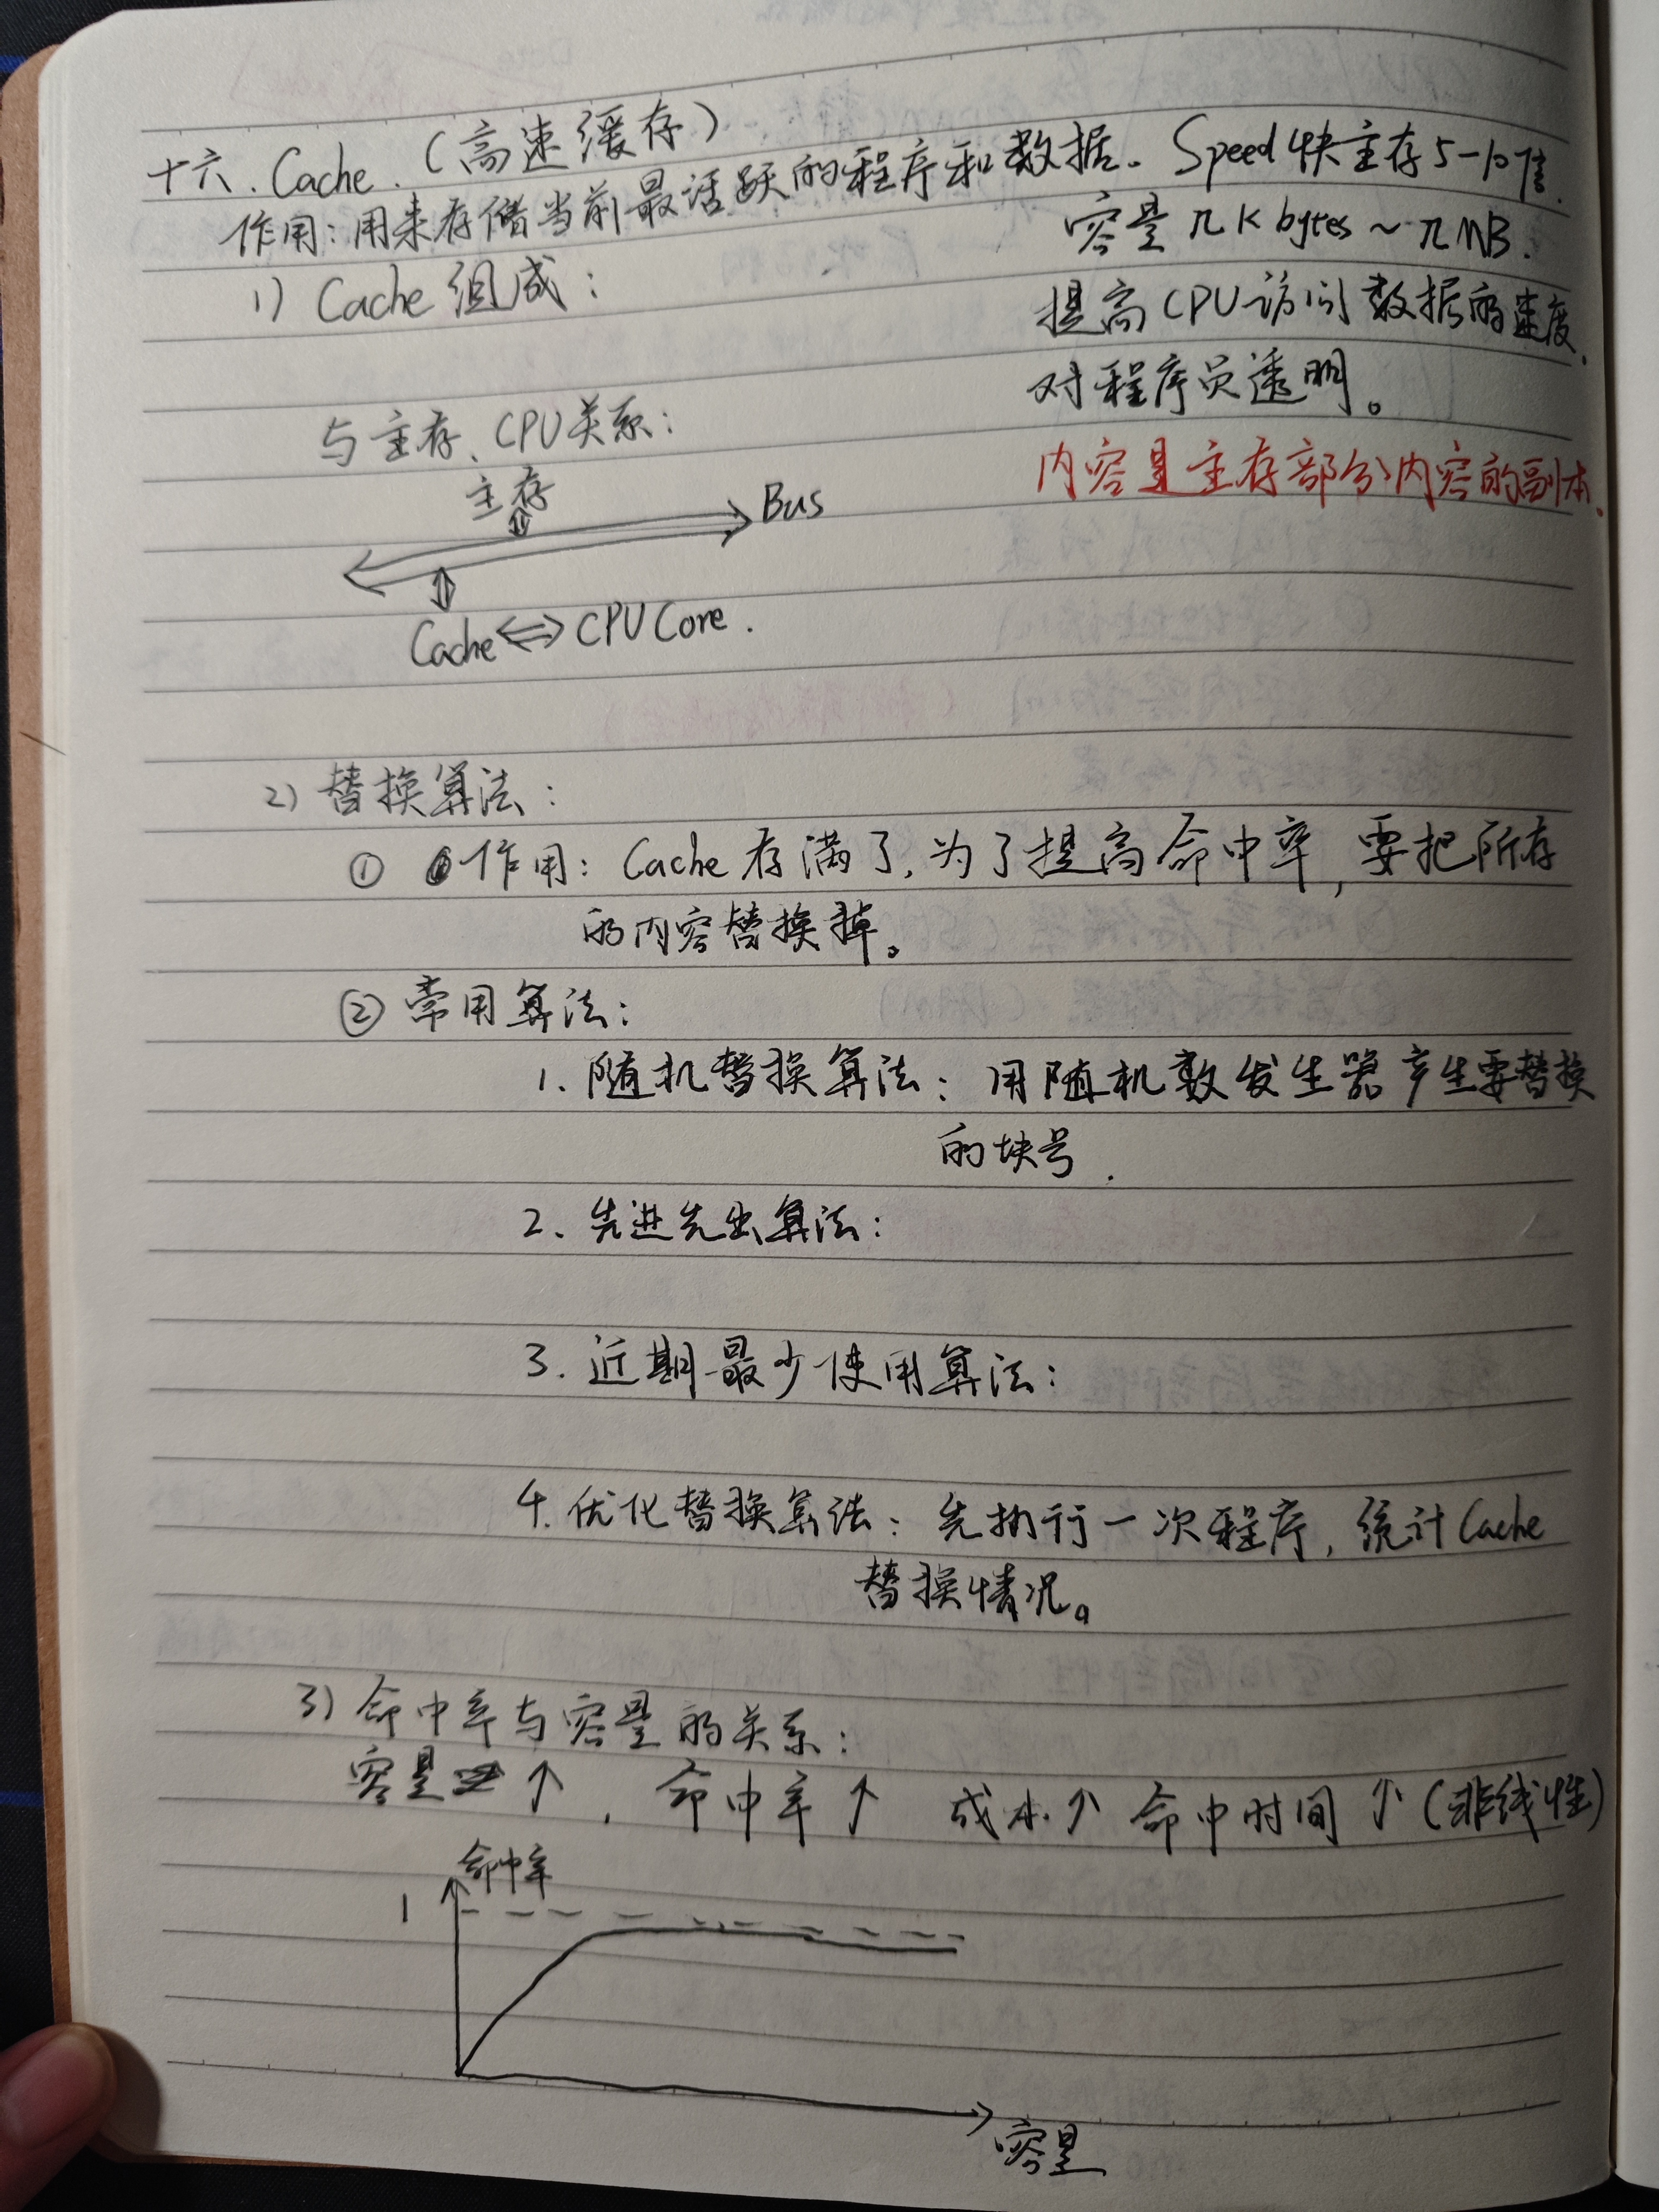 十六. Cache. (高速缓存)
作用: 用来存储当前最活跃的程序和数据. Speed快主存5-10倍.
容量 几K bytes ~ 几MB.
1) Cache 组成:
提高CPU访问数据的速度.
对程序员透明。
与主存、CPU关系:
内容是主存部分内容的副本.
主存
Bus
Cache ⇔ CPU Core.
2) 替换算法:
① 作用: Cache存满了, 为了提高命中率, 要把所存
的内容替换掉。
② 常用算法:
1. 随机替换算法: 用随机数发生器产生要替换
的块号.
2. 先进先出算法:
3. 近期最少使用算法:
4. 优化替换算法: 先执行一次程序, 统计Cache
替换情况。
3) 命中率与容量的关系:
容量 ↑, 命中率 ↑ 成本↑ 命中时间 ↑ (非线性)
命中率
1
容量